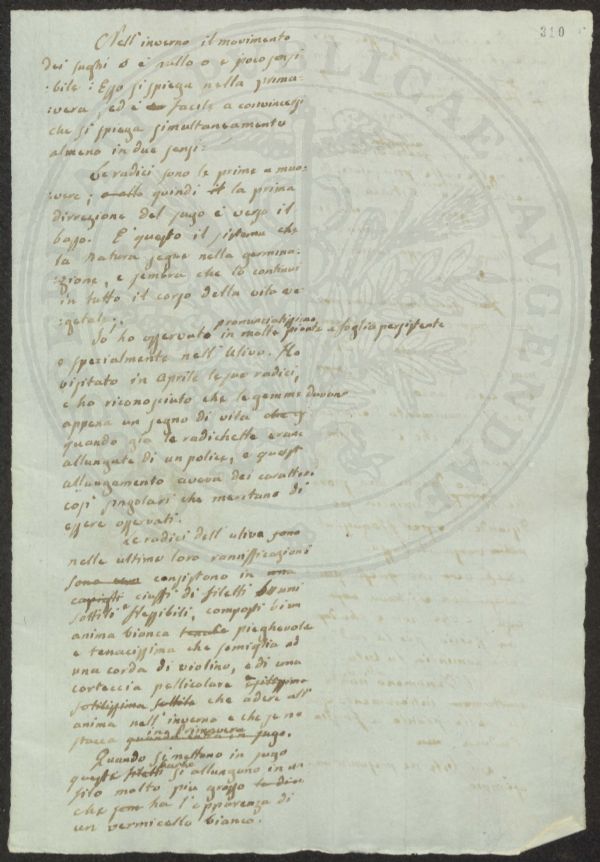 310
Nell' inverno il movimento
dei sughi è nullo o è poco sensi
:bile: Esso si spiega nella prima-
vera, ed è facile a convincersi
che si spiega simultaneamente
almeno in due sensi:
Le radici sono le prime a muo-
:vere; quindi la prima
dirrezione del sugo è verso il
basso. E' questo il sistema che
la Natura segue nella germina-
:zione, e sembra che lo continui
in tutto il corso della vita ve
:getale:
pronunciatissimo
Io ho osservato in molte piante a foglia persistente
e spezialmente nell' Ulivo. Ho
visitato in Aprile le sue radici,
e ho riconosciuto che le gemme davano
appena un segno di vita
quando già le radichette erano
allungate di un police, e quest
allungamento aveva dei caratteri
così singolari che meritano di
essere osservati.
Le radici dell' ulivo sono
nelle ultime loro rannificazioni
sono consistono in una
ciuffi di filetti bruni
sottili flessibili, composti di un
anima bianca tenace pieghevole
e tenacissima che somiglia ad
una corda di violino, e di una
corteccia pellicolare
sotilissima sottile che adere all'
anima nell' inverno e che se ne
in Primavera
stacca quando entra in sugo.
Quando si mettono in sugo
queste si allungano in un
filo molto più grosso
che son ha l'apparenza di
un vermicello bianco.